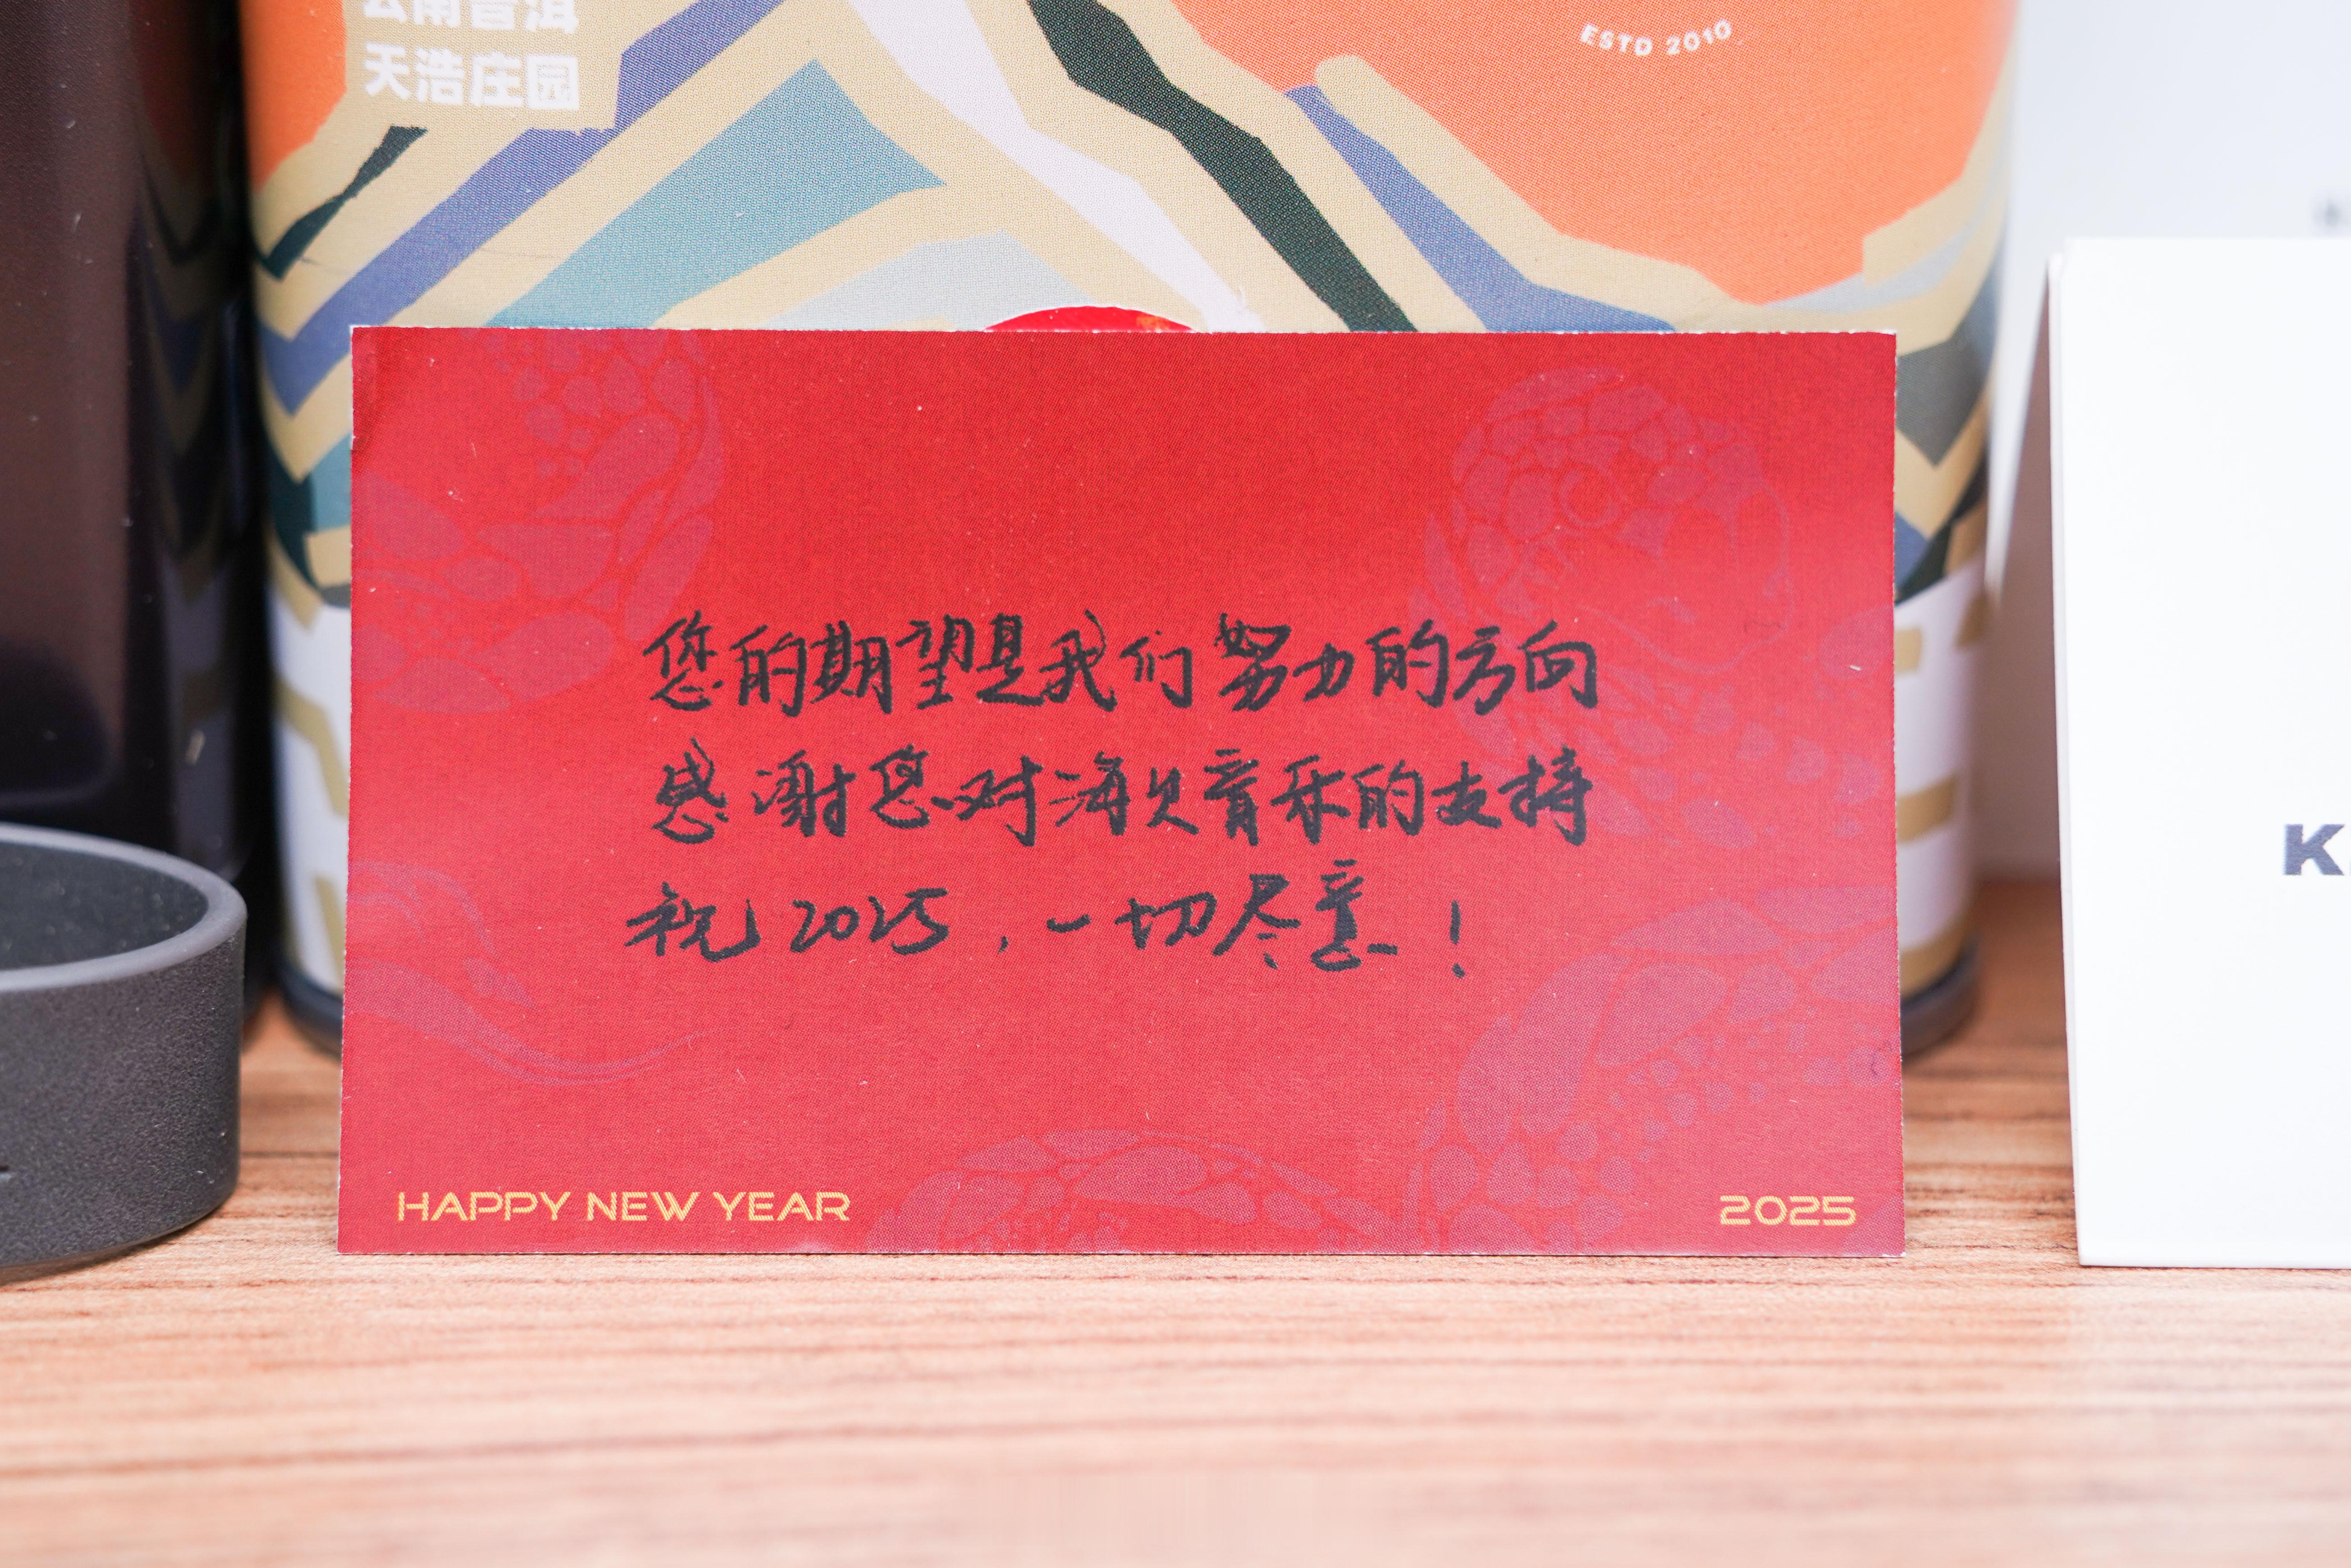 云南普洱
天浩庄园
ESTD 2010
您的期望是我们努力的方向
感谢您对海贝音乐的支持
祝2025,一切尽意!
HAPPY NEW YEAR
2025